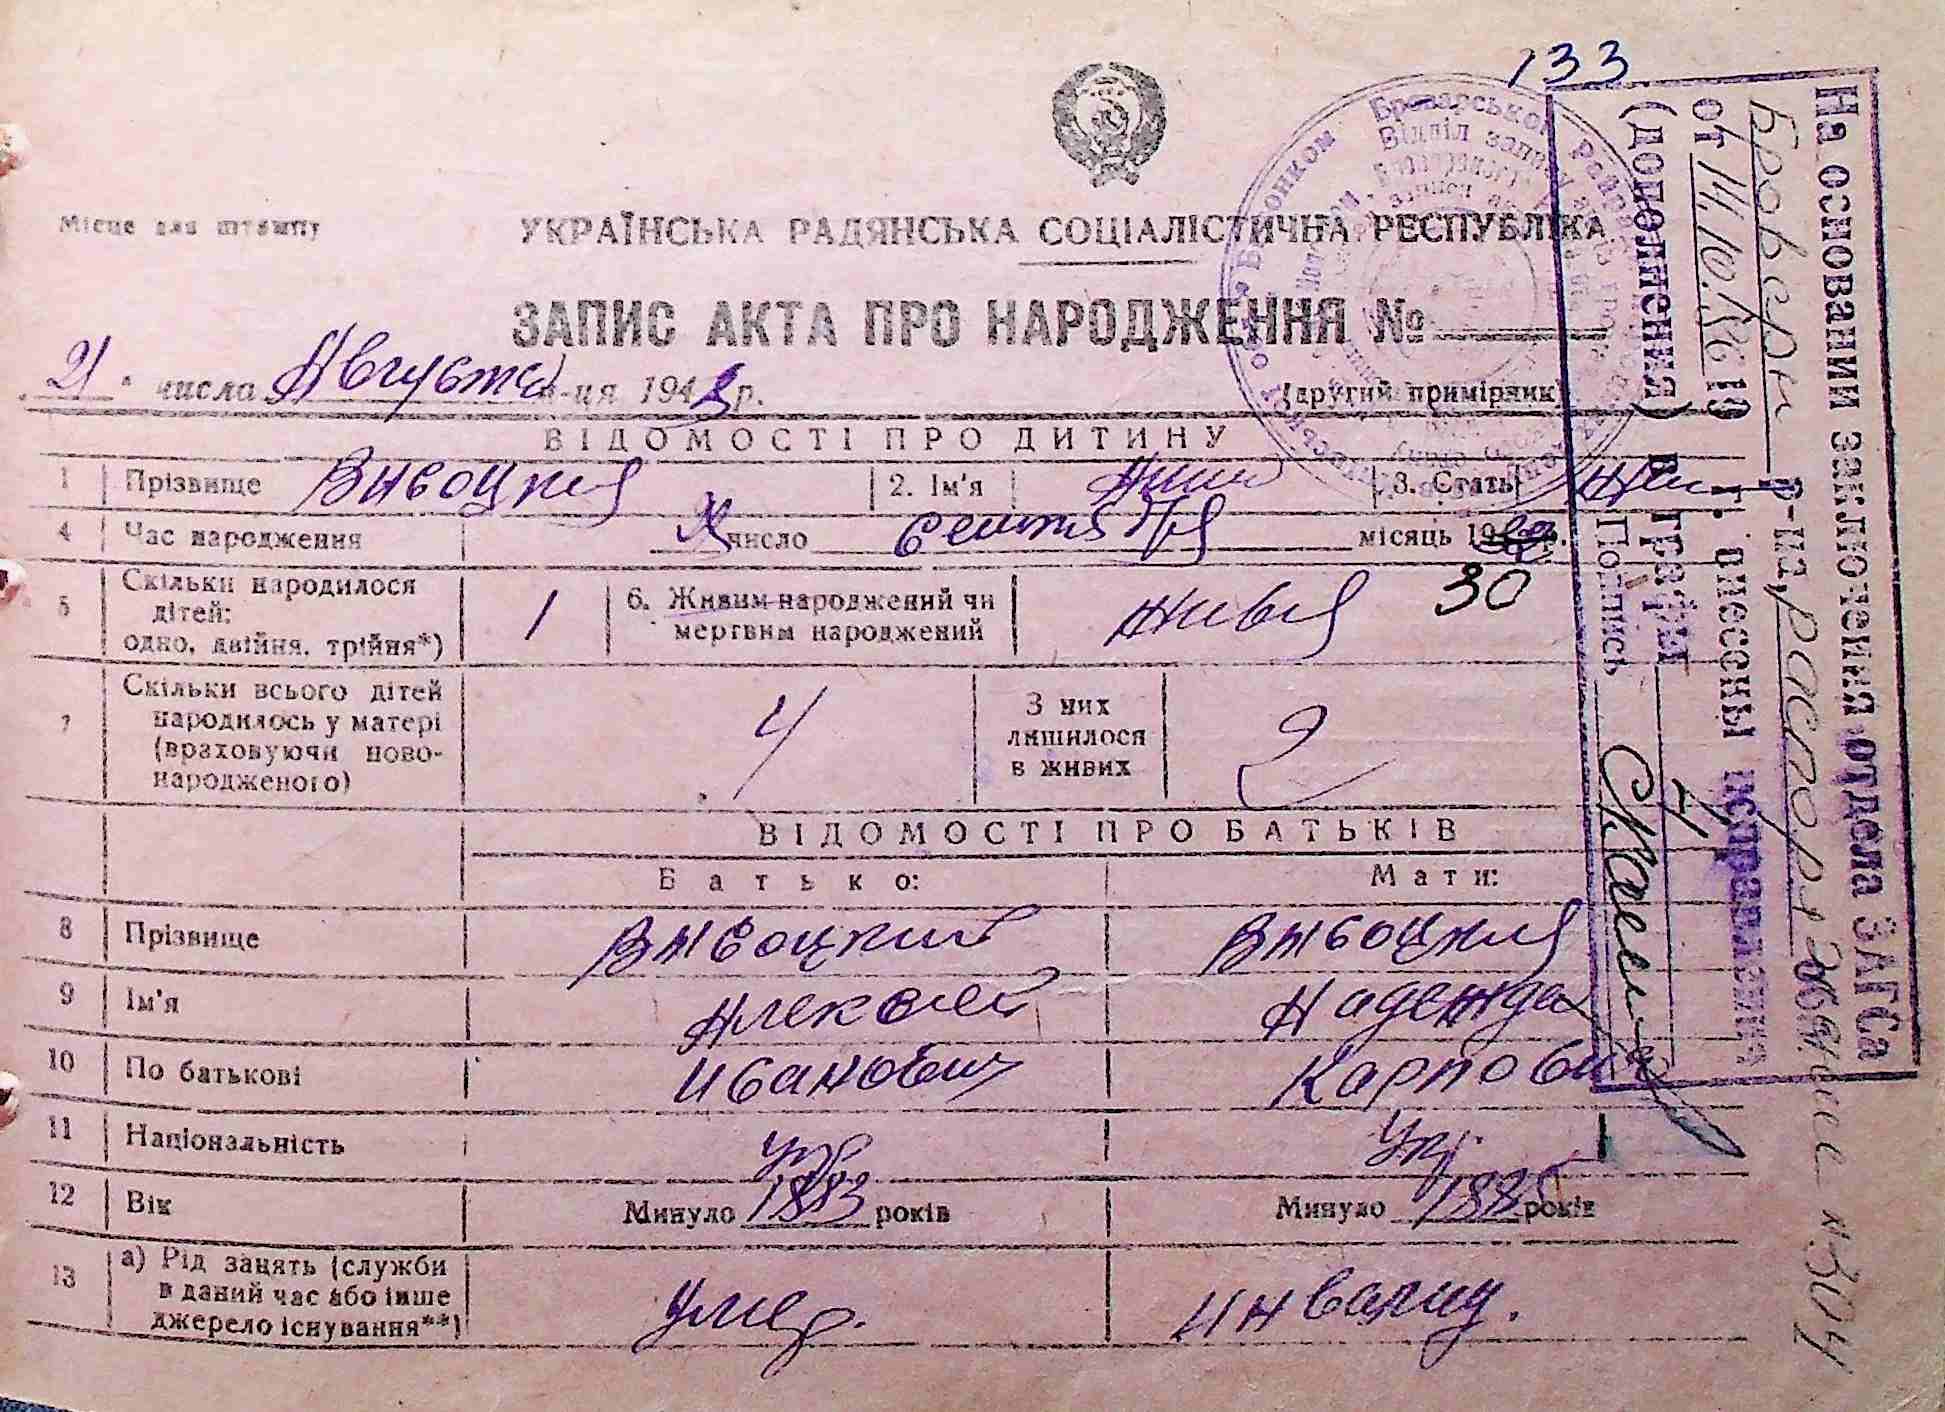 133
Місце для штампу
УКРАЇНСЬКА РАДЯНСЬКА СОЦІАЛІСТИЧНА РЕСПУБЛІКА
ЗАПИС АКТА ПРО НАРОДЖЕННЯ №
21 " числа Августа м-ця 1943 р.
(другий примірник)
ВІДОМОСТІ ПРО ДИТИНУ
1 Прізвище Высоцкая 2. Ім'я Анна 3. Стать жен
4 Час народження число сентября місяць 19 р.
30
5 Скільки народилося дітей: одно, двійня, трійня*) 1 6. Живим народжений чи мертвим народжений живая
7 Скільки всього дітей народилось у матері (враховуючи новонародженого) 4 З них лишилося в живих 2
ВІДОМОСТІ ПРО БАТЬКІВ
Батько: Мати:
8 Прізвище Высоцкий Высоцкая
9 Ім'я Алексей Надежда
10 По батькові Иванович Карповна
11 Національність укр Укр.
12 Вік Минуло 1883 років Минуло 1885 років
13 а) Рід занять (служби в даний час або інше джерело існування**) умер. инвалид.
На основании заключения отдела ЗАГСа
Броварск р-на,
от 19 г. внесены исправления
(дополнения) в графы 4
Подпись
№304